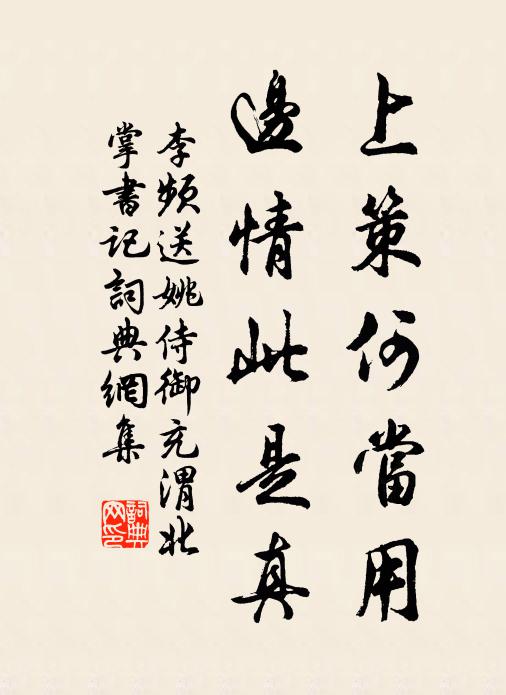 上策何當用
邊情此是真
李頻送姚侍御充渭北
掌書記詞典網集
詞典网印